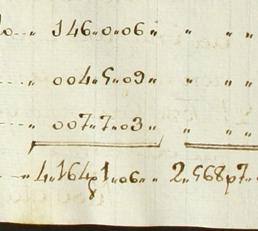 o „ 146„0„06„ „ „ „
„ 004„5„09„ „ „ „
„ 007„7„03„ „ „ „
„ 4„164p1„06„„ 2„568p7„